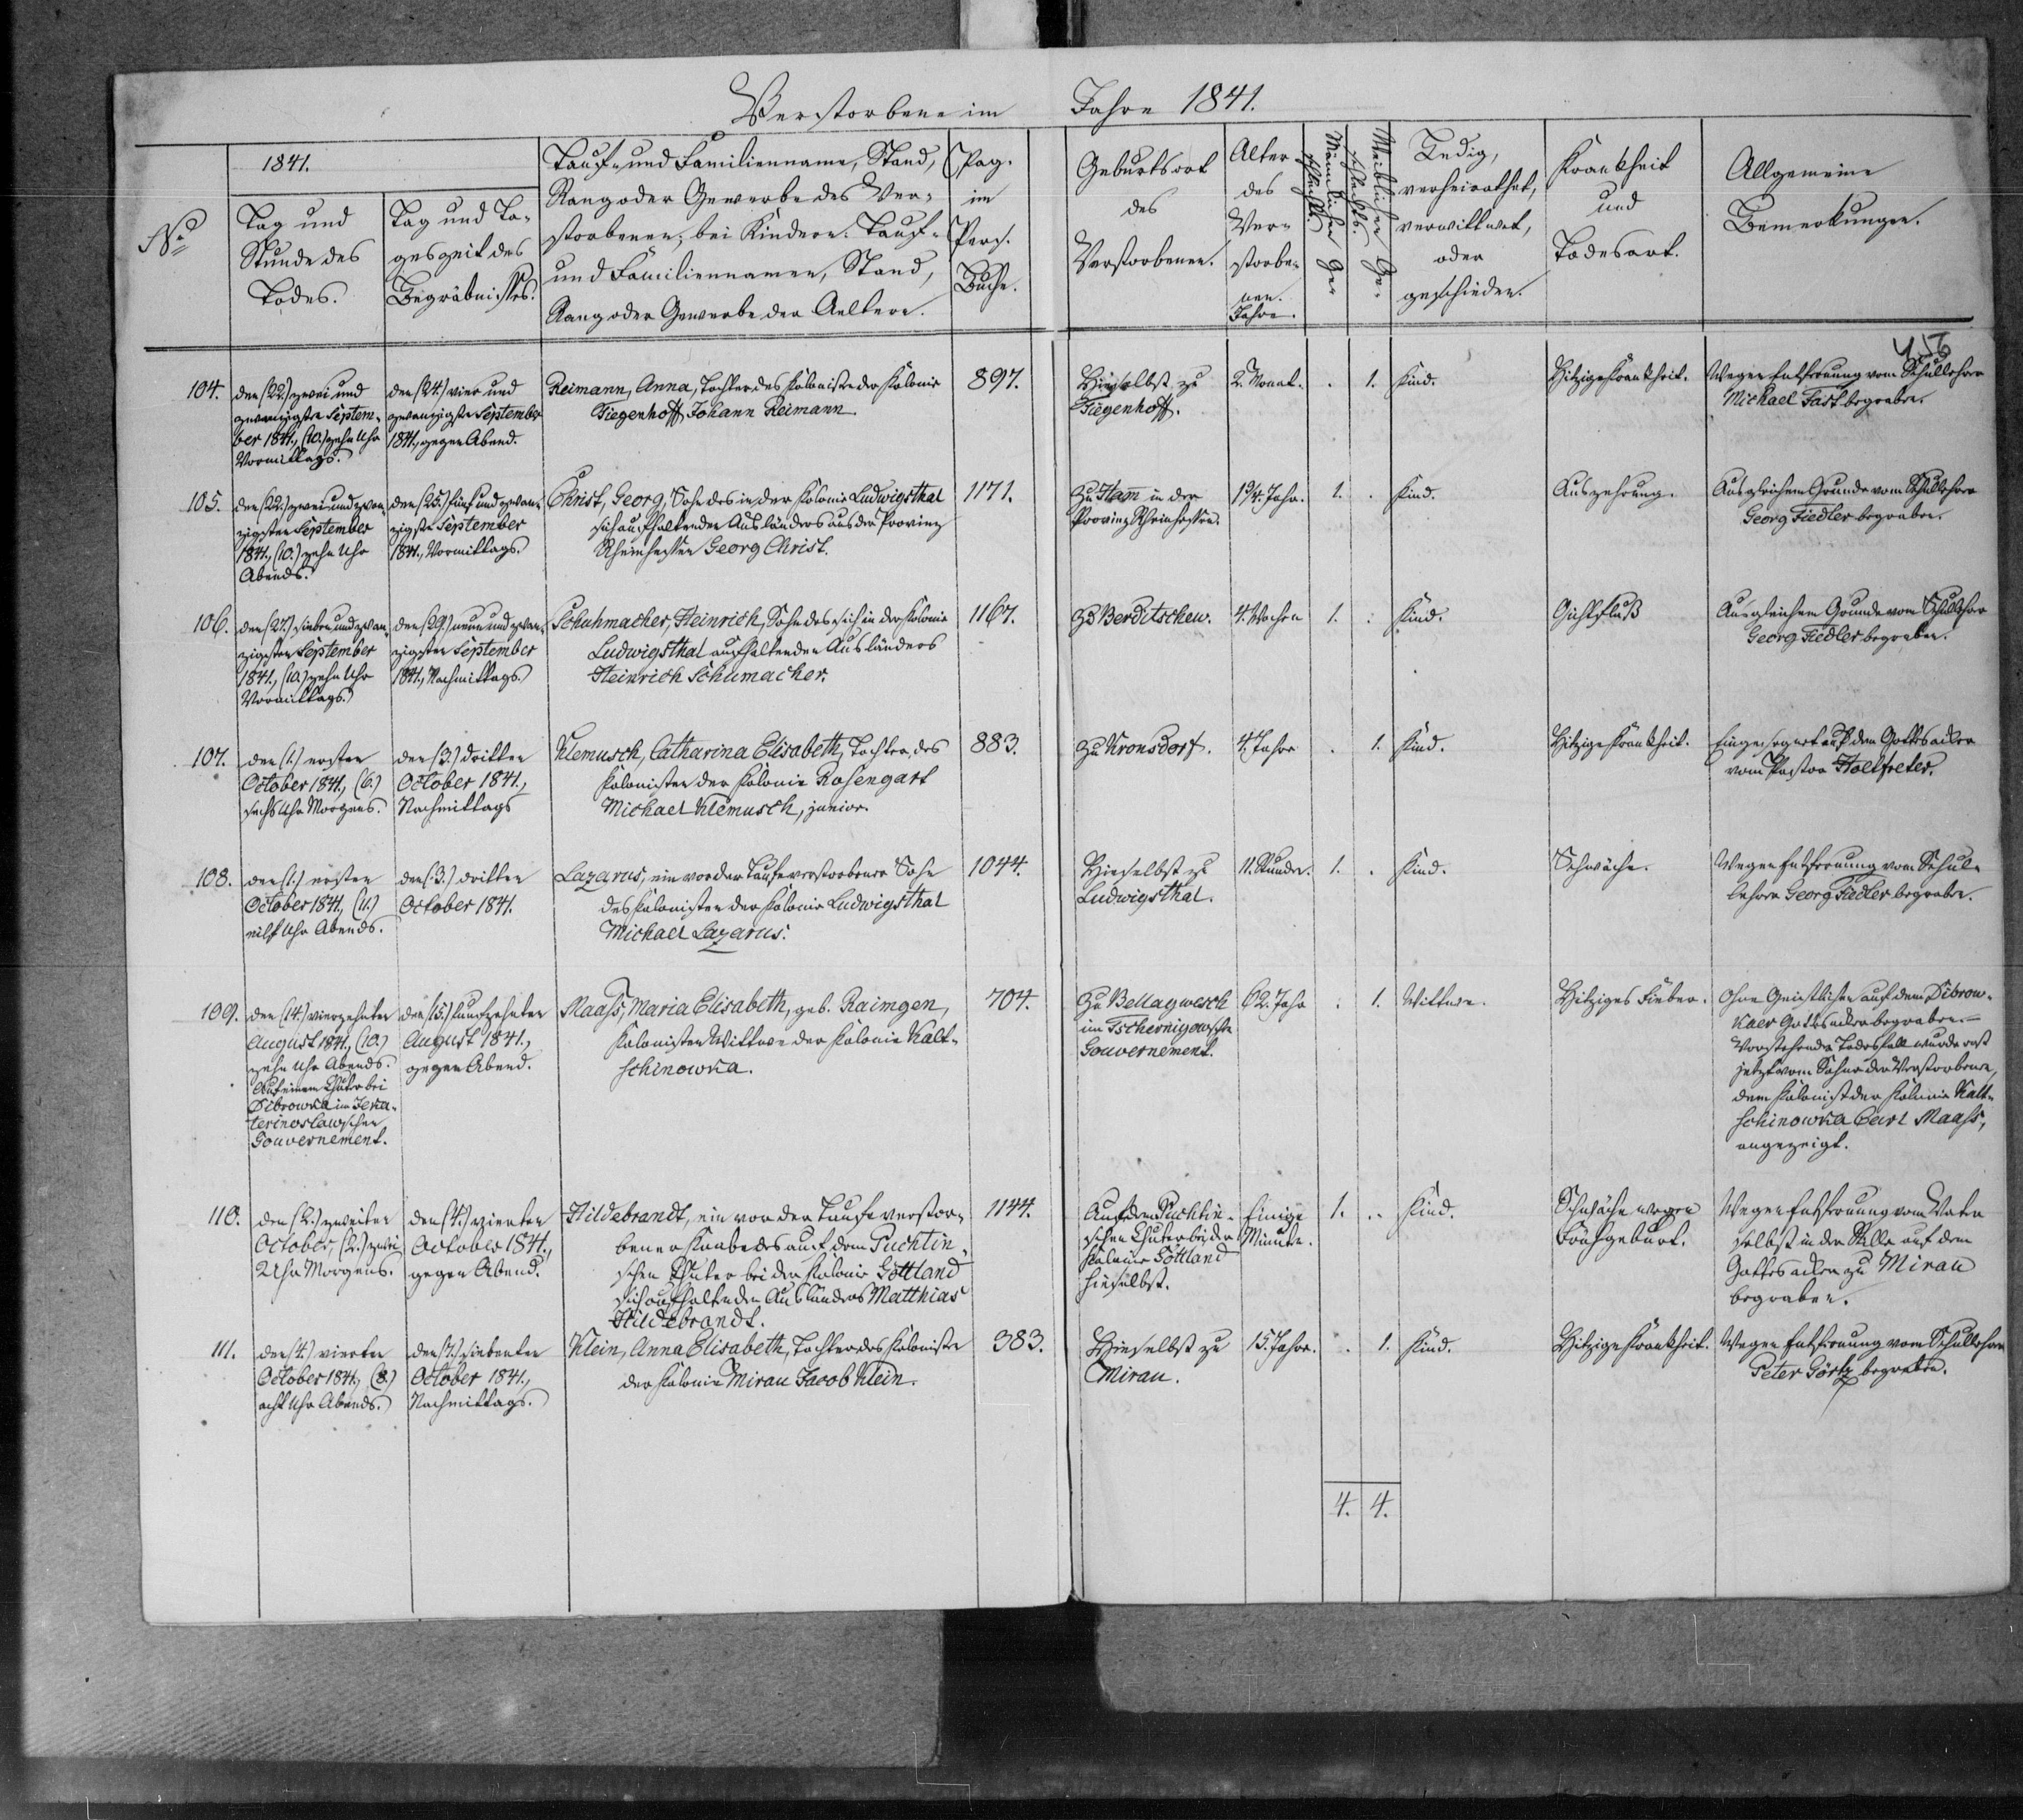 Verstorbene im Jahre 1841.
456
No
1841.
Tag und
Stunde des
Todes.
Tag und Ta-
geszeit des
Begräbnisses.
Tauf- und Familienname, Stand,
Rang oder Gewerbe des Ver-
storbenen; bei Kindern: Tauf-
und Familiennamen, Stand,
Rang oder Gewerbe der Aeltern.
Pag.
im
Pers.
Buche.
Geburtsort
des
Verstorbenen.
Alter
des
Ver-
storbe-
nen.
Jahre.
Männlichen Ge-
schlechts.
Weiblichen Ge-
schlechts.
Ledig,
verheirathet,
verwittwet,
oder
geschieden.
Krankheit
und
Todesart.
Allgemeine
Bemerkungen.
104.
den (22.) zwei und
zwanzigsten Septem-
ber 1841., (10.) zehn Uhr
Vormittags.
den (24.) vier und
zwanzigsten September
1841., gegen Abend.
Reimann, Anna, Tochter des Kolonisten der Kolonie
Tiegenhoff, Johann Reimann.
897.
Hieselbst zu
Tiegenhoff.
2. Monat.
.
1.
Kind.
Hitzige Krankheit.
Wegen Entfernung vom Schullehrer
Michael Fast begraben.
105.
den (22.) zwei und zwan-
zigsten September
1841., (10.) zehn Uhr
Abends.
den (25.) fünf und zwan-
zigsten September
1841., Vormittags.
Christ, Georg, Sohn des in der Kolonie Ludwigsthal
sich aufhaltenden Ausländers aus der Provinz
Rheinhessen Georg Christ.
1171.
Zu in der
Provinz Rheinhessen.
1¾. Jahr.
1.
.
Kind.
Auszehrung.
Aus gleichem Grunde vom Schullehrer
Georg Fiedler begraben.
106.
den (27.) sieben und zwan-
zigsten September
1841., (10.) zehn Uhr
Vormittags.
den (29.) neun und zwan-
zigsten September
1841., Nachmittags.
Schuhmacher, Heinrich, Sohn des sich in der Kolonie
Ludwigsthal aufhaltenden Ausländers
Heinrich Schumacher.
1167.
Zu Berditschew.
4. Wochen
1.
.
Kind.
Aus gleichem Grunde vom Schullehrer
Georg Fiedler begraben.
107.
den (1.) ersten
October 1841., (6.)
sechs Uhr Morgens.
den (3.) dritten
October 1841.,
Nachmittags
Klemusch, Catharina Elisabeth, Tochter des
Kolonisten der Kolonie Rosengart
Michael Klemusch, junior.
883.
Zu Kronsdorf.
4. Jahre
.
1.
Kind.
Hitzige Krankheit.
Eingesegnet auf dem Gottesacker
vom Pastor Holtfreter.
108.
den (1.) ersten
October 1841., (11.)
eilf Uhr Abends.
den (3.) dritten
October 1841.
Lazarus, ein vor der Taufe verstorbener Sohn
des Kolonisten der Kolonie Ludwigsthal
Michael Lazarus.
1044.
Hieselbst zu
Ludwigsthal.
11. Stunden.
1.
.
Kind.
Schwäche.
Wegen Entfernung vom Schul-
lehrer Georg Fiedler begraben.
109.
den (14.) vierzehnten
August 1841., (10.)
zehn Uhr Abends.
Auf einem Chutor bei
Dibrowka im Jeka-
terinoslawschen
Gouvernement.
den (15.) funfzehnten
August 1841.,
gegen Abend.
Maass, Maria Elisabeth, geb. Raimgen,
Kolonisten Wittwe der Kolonie Kalt-
schinowka.
704.
Zu Bellaywesch
im Tschernigowschen
Gouvernement.
62. Jahr
.
1.
Wittwe.
Hitziges Fieber.
Ohne Geistlichen auf dem Dibrow-
kaer Gottesacker begraben. –
Vorstehender Todesfall wurde erst
jetzt vom Sohne der Verstorbenen,
dem Kolonist der Kolonie Kalt-
schinowka Carl Maass,
angezeigt.
110.
den (2.) zweiten
October, (2.) zwei
Uhr Morgens.
den (4.) vierten
October 1841.,
gegen Abend.
Hildebrandt, ein vor der Taufe verstor-
bener Knabe des auf dem Puchtin-
schen Chutor bei der Kolonie Göttland
sich aufhaltenden Ausländers Matthias
Hildebrandt.
1144.
Auf dem Puchtin-
schen Chutor bei der
Kolonie Göttland
hieselbst.
Einige
Minuten.
1.
..
Kind.
Schwäche wegen
Frühgeburt.
Wegen Entfernung vom Vater
selbst in der Stille auf dem
Gottesacker zu Mirau
begraben.
111.
den (4.) vierten
October 1841., (8.)
acht Uhr Abends.
den (7.) siebenten
October 1841.,
Nachmittags.
Klein, Anna Elisabeth, Tochter des Kolonisten
der Kolonie Mirau Jacob Klein.
383.
Hieselbst zu
Mirau.
15 Jahre.
.
1.
Kind.
Hitzige Krankheit.
Wegen Entfernung vom Schullehrer
Peter Görtz begraben.
4.
4.